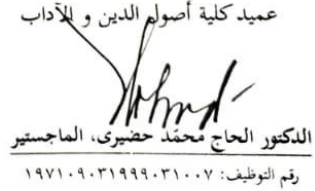 عميد كلية أصول الدين و الآداب
الدكتور الحاج محمّد حضيرى، الماجستير
رقم التوظيف: ١٩٧١٠٩٠٣١٩٩٩٠٣١٠٠٧